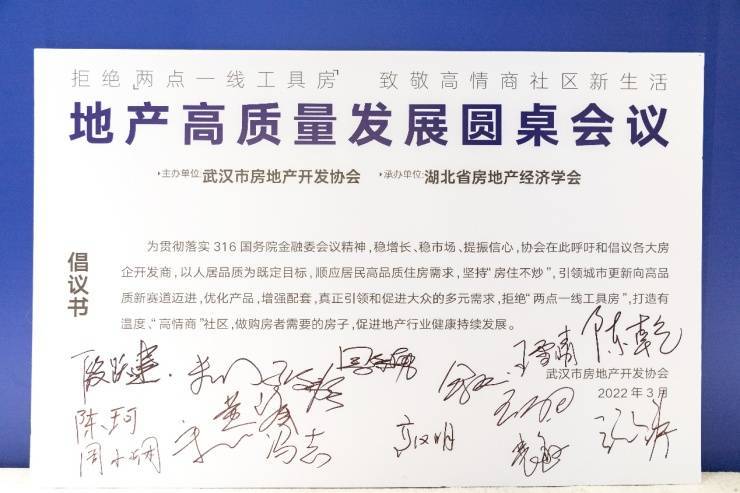 拒绝「两点一线工具房」 致敬高情商社区新生活
地产高质量发展圆桌会议
·主办单位:武汉市房地产开发协会 ·承办单位:湖北省房地产经济学会
倡议书
为贯彻落实 316 国务院金融委会议精神，稳增长、稳市场、提振信心，协会在此呼吁和倡议各大房
企开发商，以人居品质为既定目标，顺应居民高品质住房需求，坚持“房住不炒”，引领城市更新向高品
质新赛道迈进，优化产品，增强配套，真正引领和促进大众的多元需求，拒绝“两点一线工具房”，打造有
温度、“高情商”社区，做购房者需要的房子，促进地产行业健康持续发展。
陈乾
武汉市房地产开发协会
2022 年 3 月
陈珂
冯志